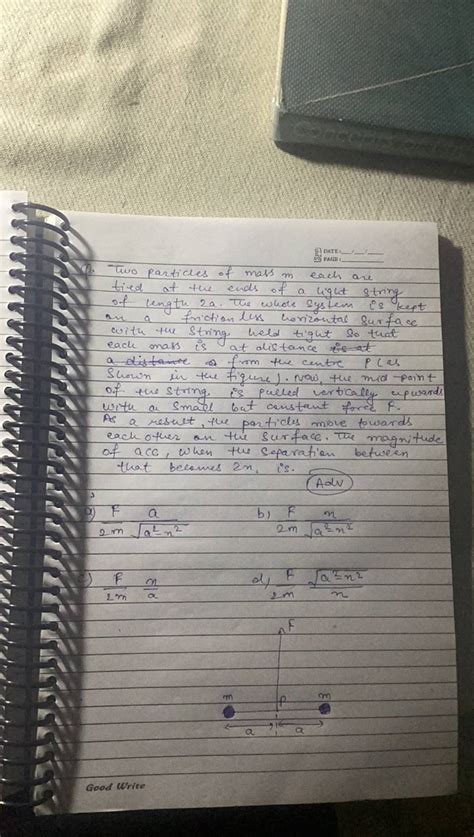 DATE: __/__/__
PAGE:
Two particles of mass m each are
tied at the ends of a light string
of length 2a. The whole system is kept
on a frictionless horizontal surface
with the string held tight so that
each mass is at distance is at
a distance a from the centre P (as
shown in the figure). Now, the mid-point
of the string is pulled vertically upwards
with a small but constant force F.
As a result, the particles move towards
each other on the surface. The magnitude
of acc, when the separation between
that becomes 2x, is.
Adv
a) F/2m a/√a²-x² b) F/2m x/√a²-x²
c) F/2m x/a d) F/2m √a²-x²/x
F
m P m
a a
Good Write